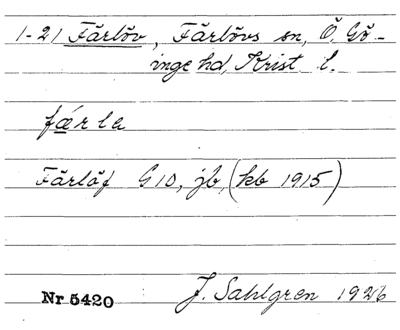 1-21 Färlöv, Färlövs sn, Ö. Gö-
inge hd, Krist. l.
færla
Färlöf G10, jb, (kb 1915)
Nr 5420 J. Sahlgren 1926